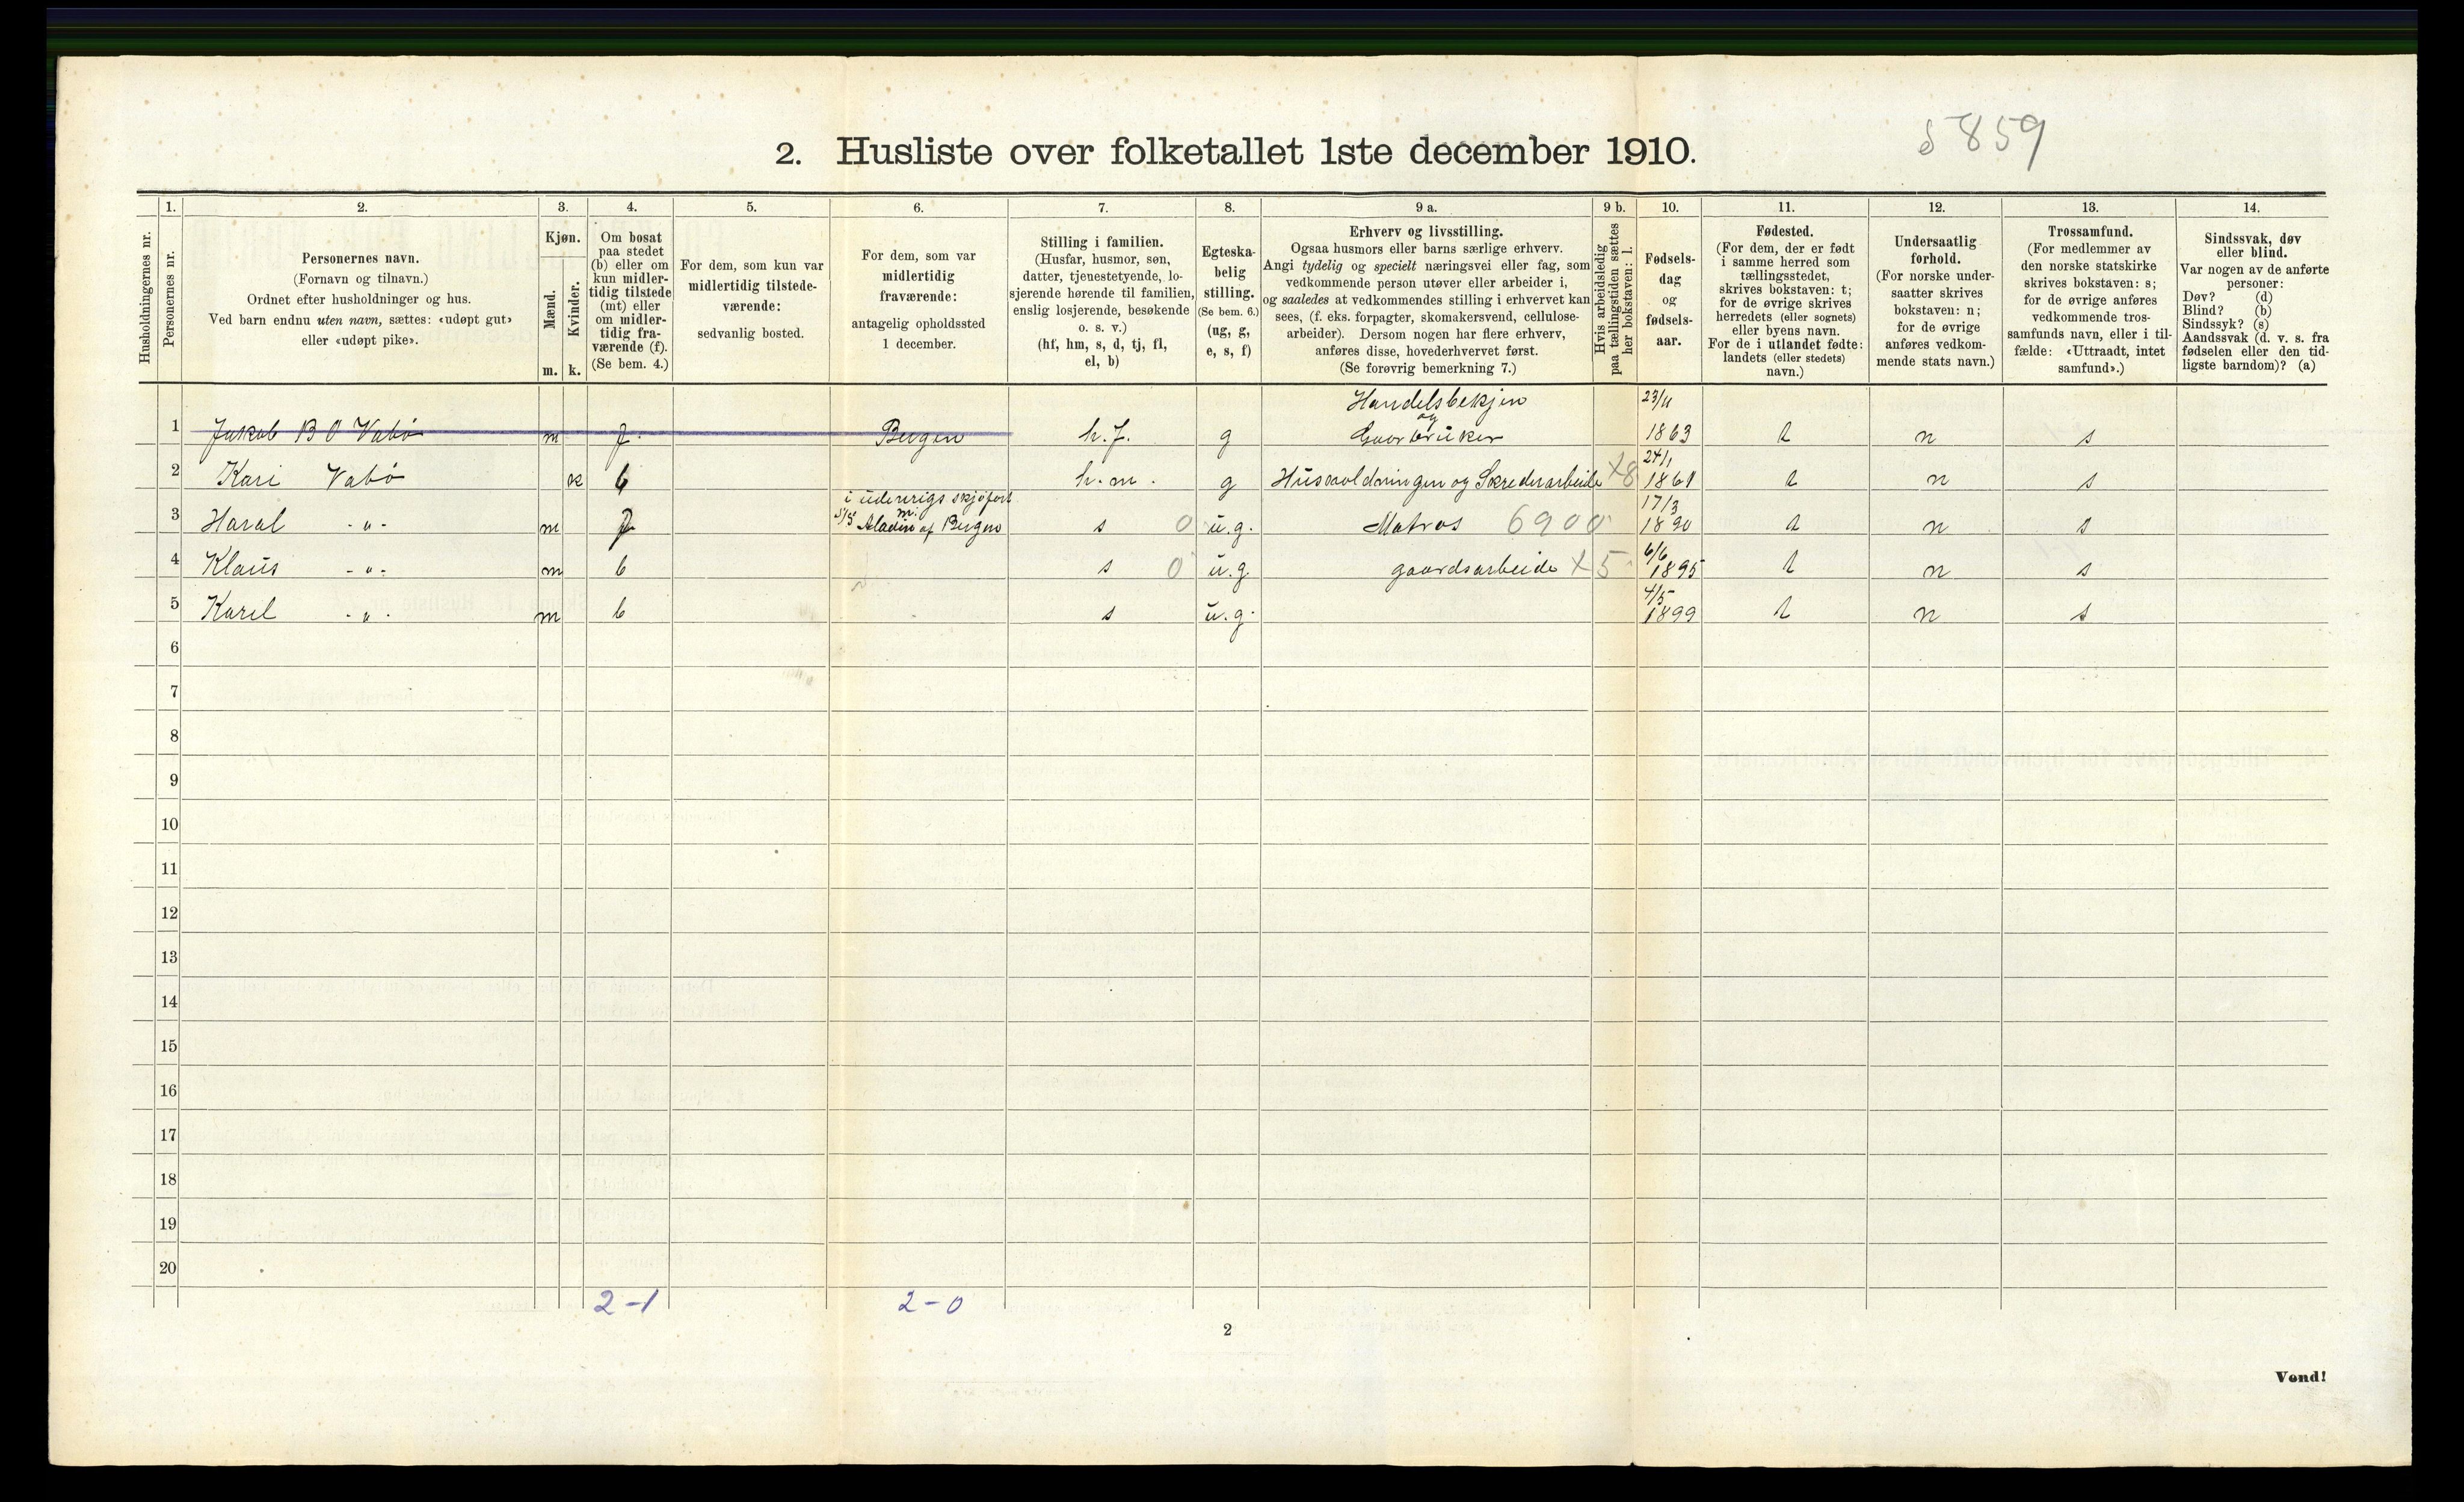 5859
2. Husliste over folketallet 1ste december 1910.
Husholdningernes nr.
1.
Personernes nr.
2.
Personernes navn.
(Fornavn og tilnavn.)
Ordnet efter husholdninger og hus.
Ved barn endnu uten navn, sættes: «udøpt gut»
eller «udøpt pike».
3.
Kjøn.
Mænd.
Kvinder.
m. k.
4.
Om bosat
paa stedet
(b) eller om
kun midler-
tidig tilstede
(mt) eller
om midler-
tidig fra-
værende (f).
(Se bem. 4.)
5.
For dem, som kun var
midlertidig tilstede-
værende:
sedvanlig bosted.
6.
For dem, som var
midlertidig
fraværende:
antagelig opholdssted
1 december.
7.
Stilling i familien.
(Husfar, husmor, søn,
datter, tjenestetyende, lo-
sjerende hørende til familien,
enslig losjerende, besøkende
o. s. v.)
(hf, hm, s, d, tj, fl,
el, b)
8.
Egteska-
belig
stilling.
(Se bem. 6.)
(ug, g,
e, s, f)
9 a.
Erhverv og livsstilling.
Ogsaa husmors eller barns særlige erhverv.
Angi tydelig og specielt næringsvei eller fag, som
vedkommende person utøver eller arbeider i,
og saaledes at vedkommendes stilling i erhvervet kan
sees, (f. eks. forpagter, skomakersvend, cellulose-
arbeider). Dersom nogen har flere erhverv,
anføres disse, hovederhvervet først.
(Se forøvrig bemerkning 7.)
9 b.
Hvis arbeidsledig
paa tællingstiden sættes
her bokstaven: l.
10.
Fødsels-
dag
og
fødsels-
aar.
11.
Fødested.
(For dem, der er født
i samme herred som
tællingsstedet,
skrives bokstaven: t;
for de øvrige skrives
herredets (eller sognets)
eller byens navn.
For de i utlandet fødte:
landets (eller stedets)
navn.)
12.
Undersaatlig
forhold.
(For norske under-
saatter skrives
bokstaven: n;
for de øvrige
anføres vedkom-
mende stats navn.)
13.
Trossamfund.
(For medlemmer av
den norske statskirke
skrives bokstaven: s;
for de øvrige anføres
vedkommende tros-
samfunds navn, eller i til-
fælde: «Uttraadt, intet
samfund».)
14.
Sindssvak, døv
eller blind.
Var nogen av de anførte
personer:
Døv? (d)
Blind? (b)
Sindssyk? (s)
Aandssvak (d. v. s. fra
fødselen eller den tid-
ligste barndom)? (a)
Handelsbekjen 23/11
og
1 Jakob B O Vabø m f. Bergen h.f. g Gaarbrüker 1863 t n s
24/1
2 Kari Vabø k b h.m. g Hüsholdningen og Skrederarbeide x8 1861 t n s
i üdenrigs skjøfart 17/3
3 Haral -"- m f S/S Aladin af Bergen s 0 ü.g. Matros 6900 1890 t n s
6/6
4 Klaüs -"- m b s 0 ü.g. gaardsarbeide x5 1895 t n s
4/5
5 Karel -"- m b s ü.g. 1899 t n s
6
7
8
9
10
11
12
13
14
15
16
17
18
19
20
2-1 2-0
2
Vend!